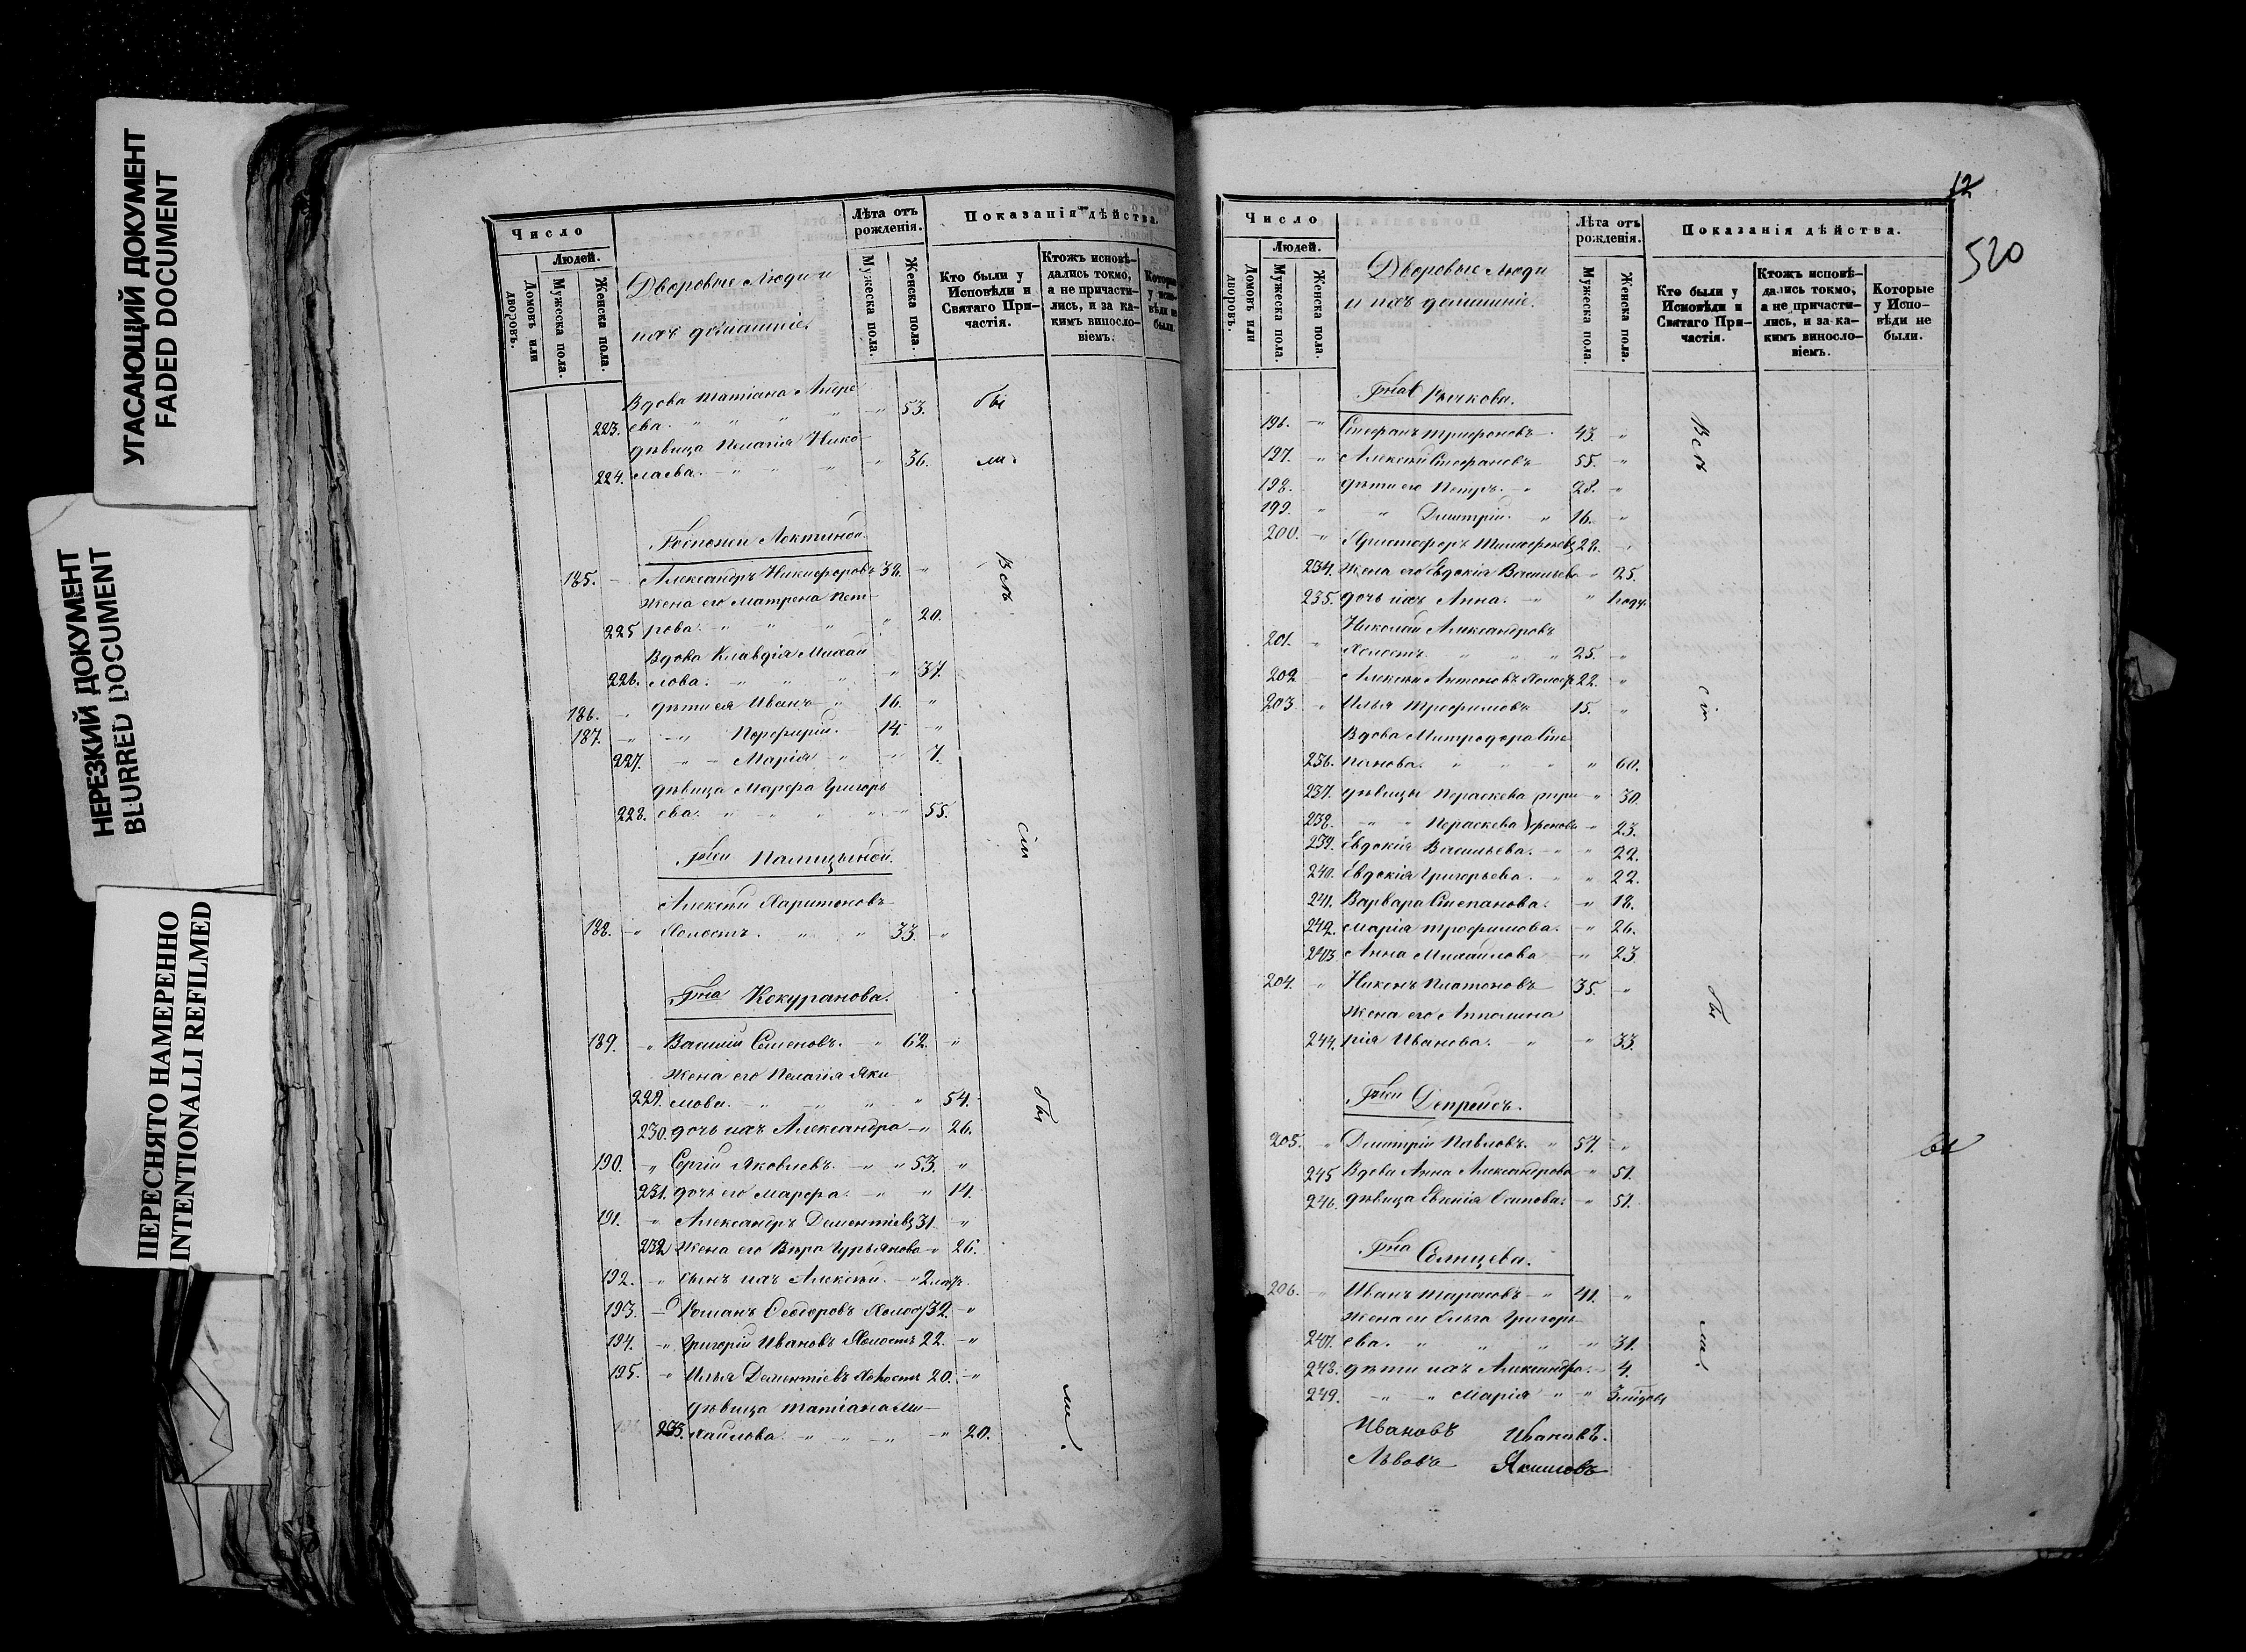 УГАСАЮЩИЙ ДОКУМЕНТ
FADED DOCUMENT
НЕРЕЗКИЙ ДОКУМЕНТ
BLURRED DOCUMENT
ПЕРЕСНЯТО НАМЕРЕННО
INTENTIONALLI REFILMED
Число
Людей.
Домовъ или дворовъ.
Мужеска пола.
Женска пола.
Дворовые Люди и
ихъ домашніе.
Лѣта отъ рожденія.
Мужеска пола.
Женска пола.
Показанія дѣйства.
Кто были у Исповѣди и Святаго Причастія.
Ктожъ исповѣдались токмо, а не причастились, и за какимъ винословіемъ.
Которые у исповѣди не были.
Вдова Татіана Андре
223. ева. " " " " 53. бы
дѣвица Пелагія Нико
224. лаева. " " " 36. ли.
Госпожи Локтиной.
185. " Александръ Никифоровъ 38. " Всѣ
Жена его Матрена Пет-
225 рова. " " " " 20.
Вдова Клавдія Михай
226. лова. " " " " 37.
186. " дѣти ея Иванъ " 16. "
187. " " Порфирій. 14. "
227. " " Марія " " 7.
дѣвица Марфа Григорь
228. ева. " " " " " 55.
сіи
Гжи Палицыной.
Алексѣй Харитоновъ
188. " Холостъ. " " 33. "
Гна Кокуранова.
189. " Василій Семеновъ. " 62. "
Жена его Пелагія Яки
229. мова. " " " " 54. бы
230. дочь ихъ Александра " 26.
190. " Сергій Яковлевъ. " " 53. "
231. дочь его Марфа. " " 14.
191. " Александръ Дементіевъ 31. "
232 Жена его Вѣра Гурьянова " 26.
192. " сынъ ихъ Алексѣй. " 2
193. " Романъ Ѳеодоровъ Холост 32. "
194. " Григорій Ивановъ Холостъ 22. "
195. " Илья Дементіевъ Холостъ 20. "
дѣвица Татіана Ми-
233. хайлова. " " " " 20. ли.
12
520
Число
Людей.
Домовъ или дворовъ.
Мужеска пола.
Женска пола.
Дворовые Люди
и ихъ домашніе.
Лѣта отъ рожденія.
Мужеска пола.
Женска пола.
Показанія дѣйства.
Кто были у Исповѣди и Святаго Причастія.
Ктожъ исповѣдались токмо, а не причастились, и за какимъ винословіемъ.
Которые у Исповѣди не были.
Гна
196. " Стефанъ Трифоновъ 43. " Всѣ
197. " Алексѣй Стефановъ 55. "
198. дѣти его Петръ. " 28. "
199. " " Димитрій. " 16. "
200. " Христофоръ 28. "
234. Жена его Евдокія Васильева " 25.
235. дочь ихъ Анна. " " 1 году.
Николай Александровъ
201. " Холостъ. " " " 25. "
202 Алексѣй Антоновъ Холост 22. " сіи
203 " Илья Трофимовъ 15. "
Вдова Митродора Сте
236. панова. " " " " 60.
237. дѣвицы Параскева Три " 30.
238. " " Параскева фоновы " 23.
239. Евдокія Васильева. " " 22.
240. Евдокія Григорьева. " " 22.
241. Варвара Степанова. " 18.
242. Марія Трофимова. " 26.
243 Анна Михайлова " 23
204. " Никонъ Платоновъ 35. " бы
Жена его Апполина
244. рія Иванова. " " 33.
Гжи Депрейсъ.
205. " Димитрій Павловъ. " 57. "
245 Вдова Анна Александрова " 51.
246. дѣвица Евгенія Осипова. " 51.
Гна Солнцева.
206. " Иванъ Тарасовъ " 41. "
Жена его Ольга Григорь
247. ева. " " " " " 31. ли.
248. дѣти ихъ Александра. " 4.
249. " " Марія " "
Ивановъ Ивановъ.
Львовъ Якимовъ